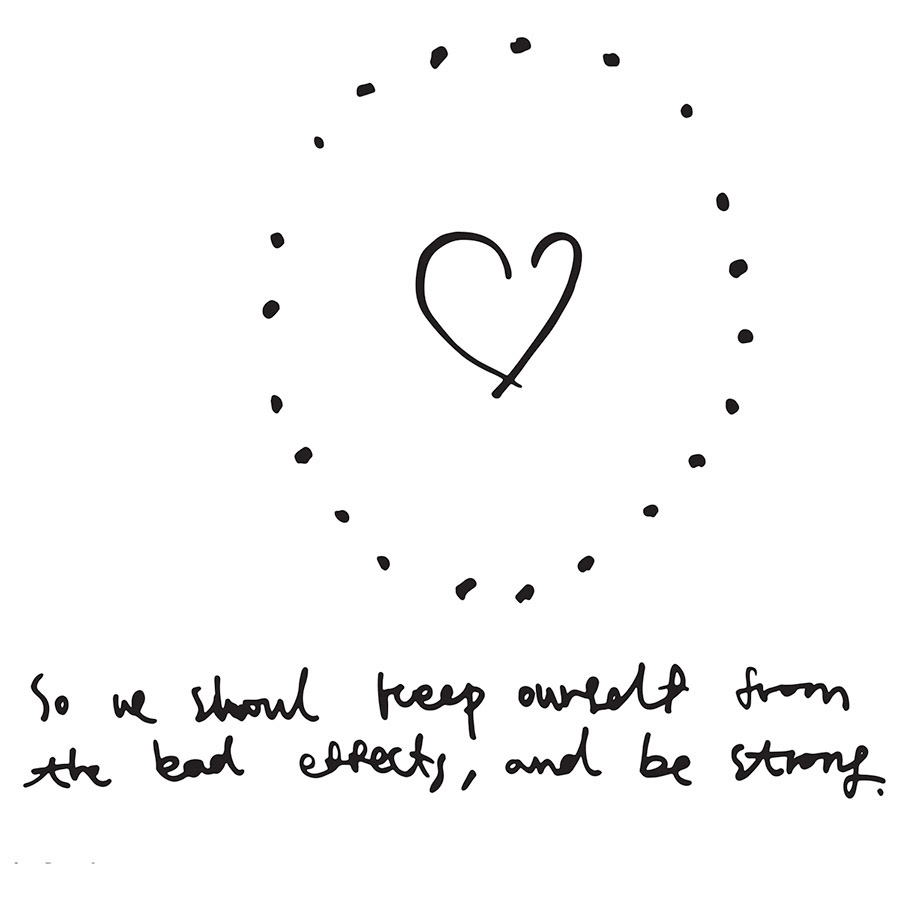 So we shoul keep ourself from
the bad effects, and be strong.